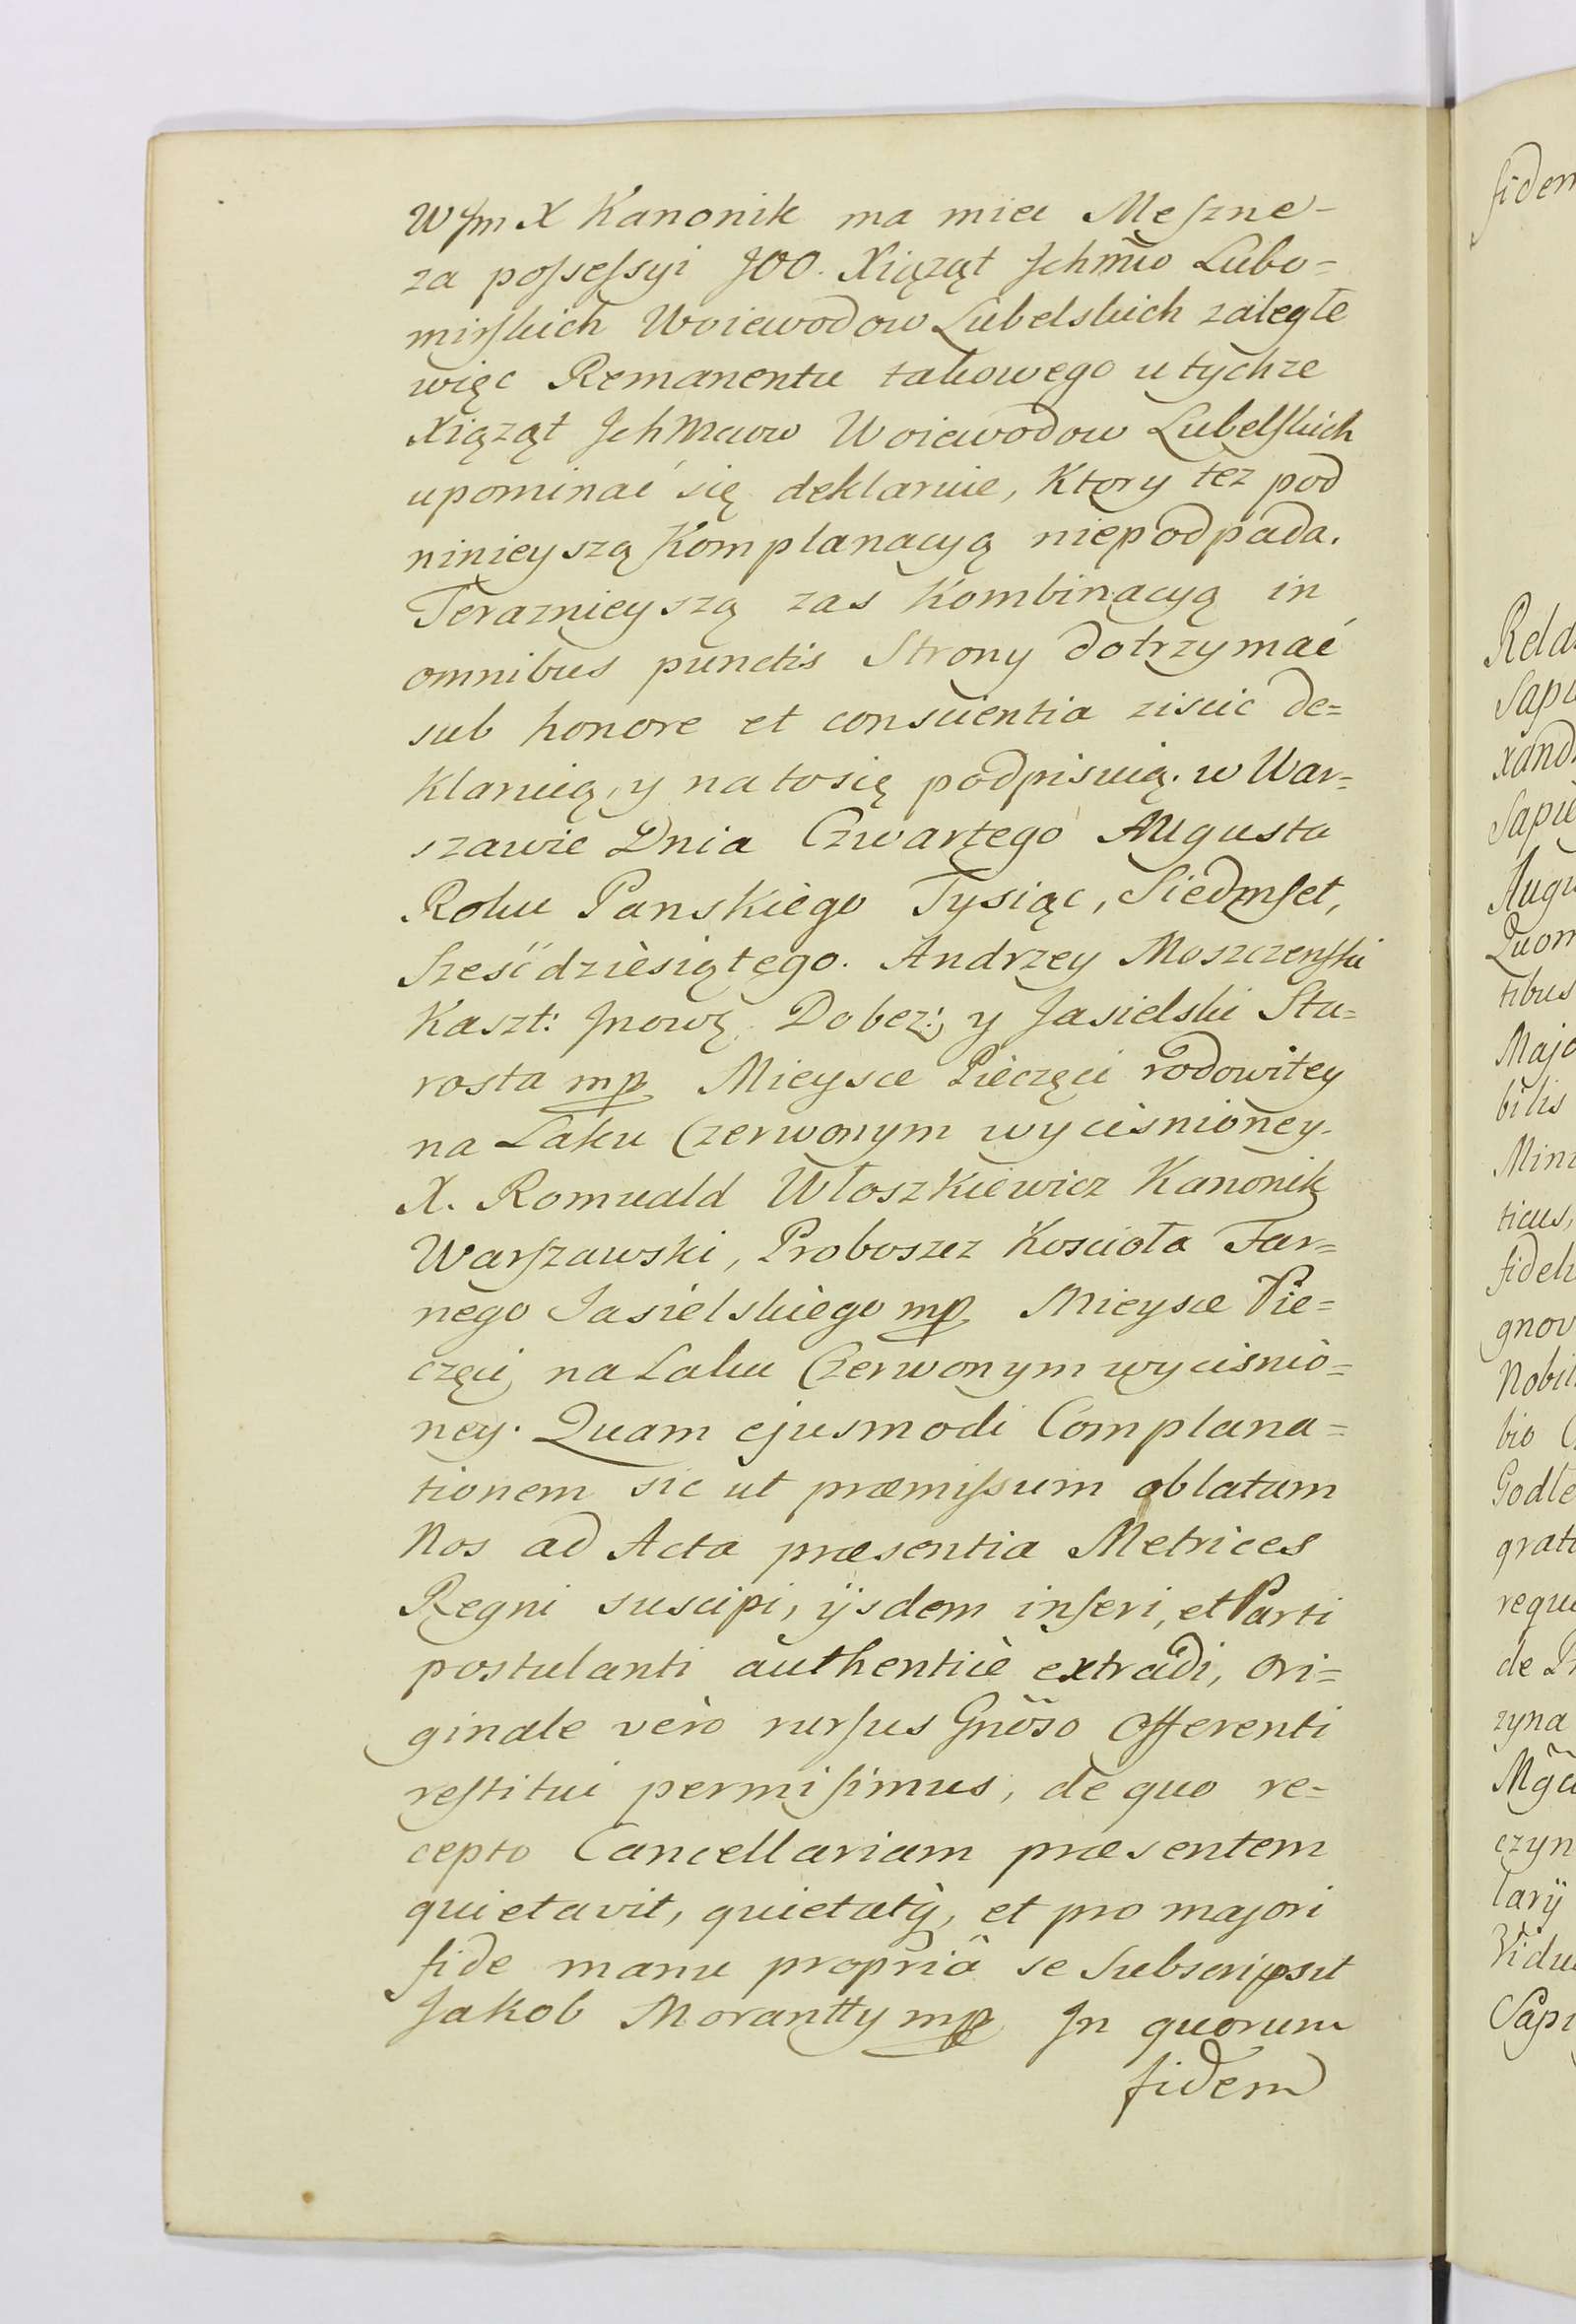 WJm X Kanonik ma mieć Meszne-
za possessyi JOO. Xiążąt Jchmćıo Lubo=
mirskich Woiewodow Lubelskich zaległe
więc Remanentu takowego u tychze
Xiążąt JchMcıow Woiewodow Lubelskich
upominać się deklaruie, Ktory tez pod
ninieyszą Komplanacyą niepodpada.
Teraznieyszą zas Kombinacyą in
omnibus punctis Strony dotrzymać
sub honore et conscientia ziscic de=
klaruią, y na to się podpisuią. w War=
szawie Dnia Czwartego Augusta
Roku Panskiego Tysiąc, Siedmset,
Sześćdziesiątego. Andrzey Moszczenski
Kaszt: Jnowł. Dobez:, y Jasielski Sta=
rosta mp Mieysce Pieczęci rodowitey
na Laku Czerwonym wyciśnioney.
X. Romuald Włoszkiewicz Kanonik
Warszawski, Proboszcz Koscioła Far=
nego Jasielskiego mp Mieysce Pie=
częci na Laku Czerwonym wyciśnio=
ney. Quam ejusmodi Complana=
tionem sic ut præmissum oblatam
Nos ad Acta præsentia Metrices
Regni suscipi, ijsdem inseri, et Parti
postulanti authenticè extradi, Ori=
ginale verò rursus Gnõso Offerenti
restitui permisimus, de quo re=
cepto Cancellariam præsentem
quietavit, quietatq́, et pro majori
fide manu propriâ se Subscripsit
Jakob Morantty mp Jn quorum
fidem
fidem
Rela
Sapi
xand
Sapie
Augu
Quom
tibus
Majo
bilis
Mini
ticus,
fideli
gnov
Nobil
bio
Godle
grati
requi
de
zyna
Mg̃a
czyn
larij
Vidu
Sapi